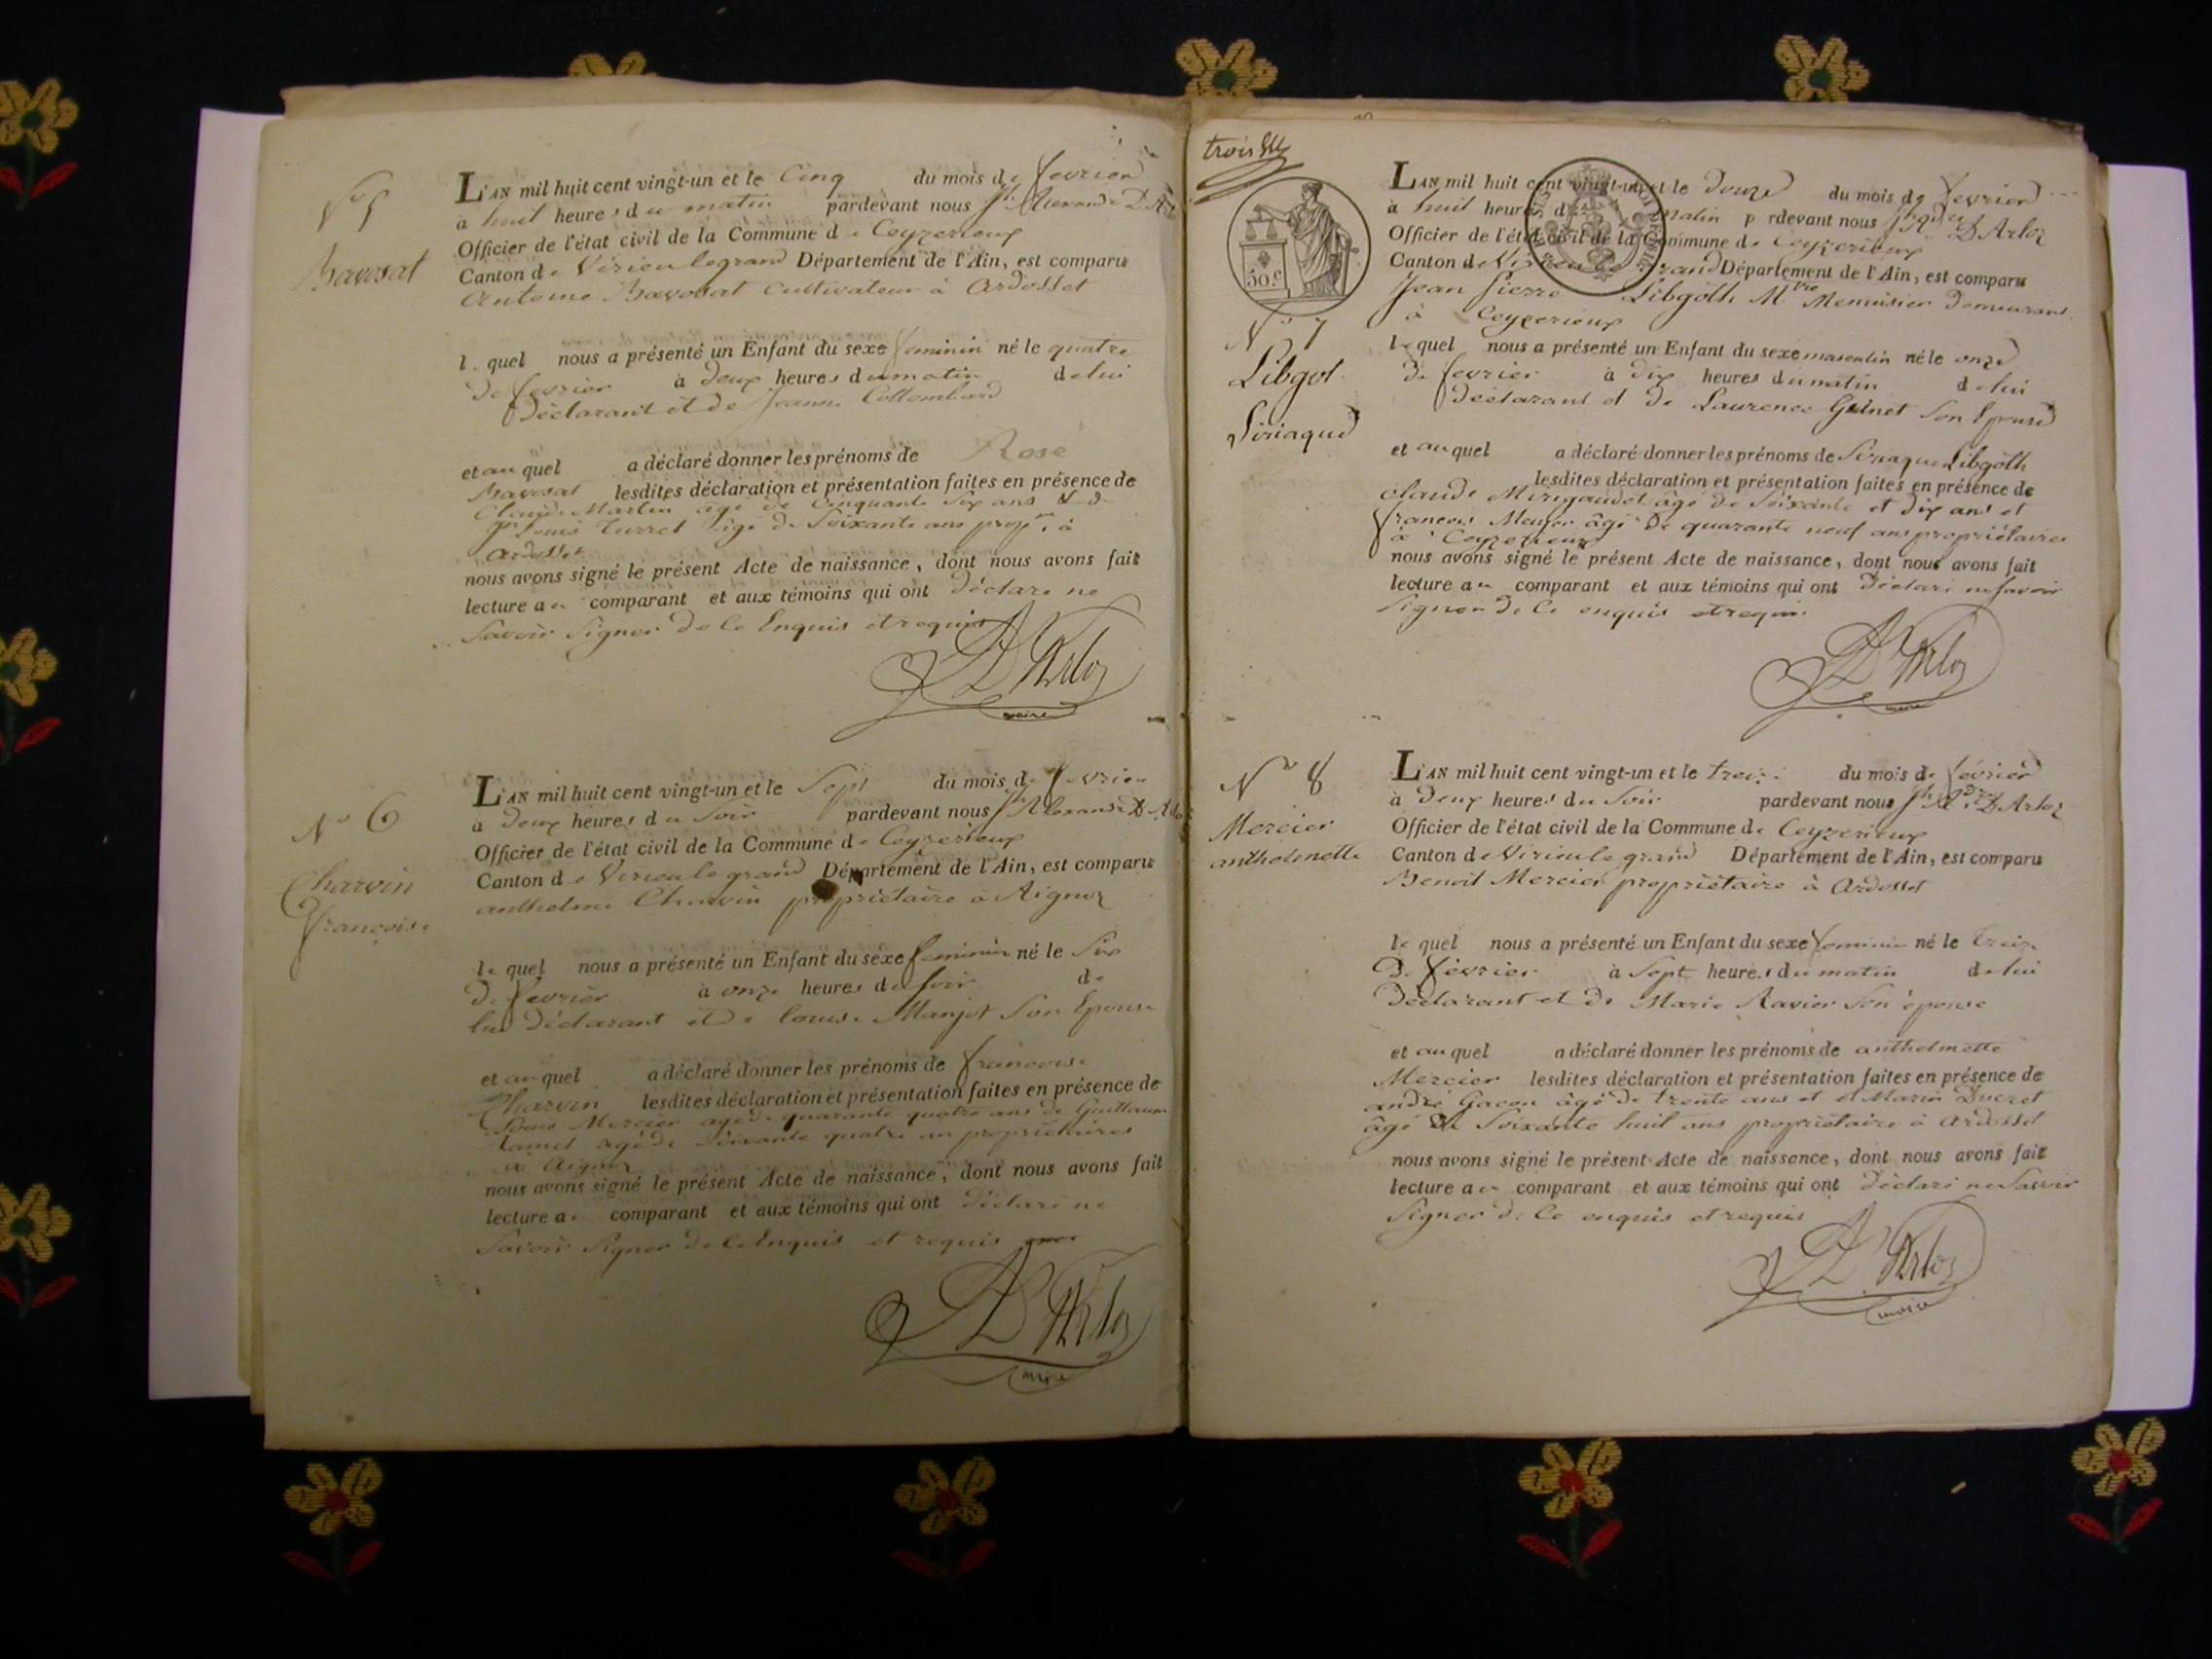 N° 5
Bavosat
L'AN mil huit cent vingt-un et le Cinq du mois de fevrier
à huit heures du matin pardevant nous Jh Alexandre D'Arloz
Officier de l'état civil de la Commune de Ceyzerieux
Canton de Virieulegrand Département de l'Ain, est comparu
Antoine Bavosat Cultivateur à Ardosset
le quel nous a présenté un Enfant du sexe feminin né le quatre
De fevrier à deux heures du matin de lui
Déclarant et de Jeanne Collombard
et au quel a déclaré donner les prénoms de Rose
Bavosat lesdites déclaration et présentation faites en présence de
Claude Martin agé de Cinquante Six ans & de
Louis Turrel âgé De Soixante ans propre à
Ardosset
nous avons signé le présent Acte de naissance, dont nous avons fait
lecture au comparant et aux témoins qui ont Déclare ne
Savoir Signer De Ce Enquis et requis
D'Arloz
maire
N° 6
Charvin
françoise
L'AN mil huit cent vingt-un et le Sept du mois de fevrier
à Deux heures du Soir pardevant nous Jh Alexandre D'Arloz
Officier de l'état civil de la Commune de Ceyzerieux
Canton de Virieu le grand Département de l'Ain, est comparu
anthelme Charvin propriétaire à Aignoz
le quel nous a présenté un Enfant du sexe feminin né le Six
De fevrier à onze heures du soir de
lui Déclarant et De louise Manjot Son Epouse
et au quel a déclaré donner les prénoms de francoise
Charvin lesdites déclaration et présentation faites en présence de
Louis Mercier agé de quarante quatre ans De Guillaume
Ramel agé de Soixante quatre an propriétaires
à Aignoz
nous avons signé le présent Acte de naissance, dont nous avons fait
lecture au comparant et aux témoins qui ont Déclaré ne
Savoir Signer De Ce Enquis et requis
D'Arloz
maire
trois
50.c
N° 7
Libgot
Siriaque
L'AN mil huit cent vingt-un et le Douze du mois de fevrier
à huit heures du matin p rdevant nous Jh Adre D'Arloz
Officier de l'état civil de la Commune de Ceyzerieux
Canton de Virieu le grand Département de l'Ain, est comparu
Jean Pierre Libgoth Mtre Menuisier Demeurant
à Ceyzerieux
le quel nous a présenté un Enfant du sexe masculin né le onze
De fevrier à dix heures du matin de lui
Déclarant et De Laurence Guinet Son Epouse
et au quel a déclaré donner les prénoms de Siriaque Libgoth
lesdites déclaration et présentation faites en présence de
Claude Mirigaudet âgé de Soixante et dix ans et
francois Meunier âgé De quarante neuf ans propriétaires
à Ceyzerieux
nous avons signé le présent Acte de naissance, dont nous avons fait
lecture au comparant et aux témoins qui ont Déclaré ne Savoir
Signer De Ce enquis et requis
D'Arloz
maire
N° 8
Mercier
anthelmette
L'AN mil huit cent vingt-un et le treize du mois de février
à Deux heures du Soir pardevant nous Jh Adre D'Arloz
Officier de l'état civil de la Commune de Ceyzerieux
Canton de Virieulegrand Département de l'Ain, est comparu
Benoit Mercier propriétaire à Ardosset
le quel nous a présenté un Enfant du sexe feminin né le treize
De février à Sept heures du matin de lui
Déclarant et De Marie Ravier Son épouse
et au quel a déclaré donner les prénoms de anthelmette
Mercier lesdites déclaration et présentation faites en présence de
andré Gacon âgé De trente ans et Marin Ducret
âgé De Soixante huit ans propriétaire à Ardosset
nous avons signé le présent Acte de naissance, dont nous avons fait
lecture au comparant et aux témoins qui ont Déclaré ne Savoir
Signer De Ce enquis et requis
D'Arloz
maire